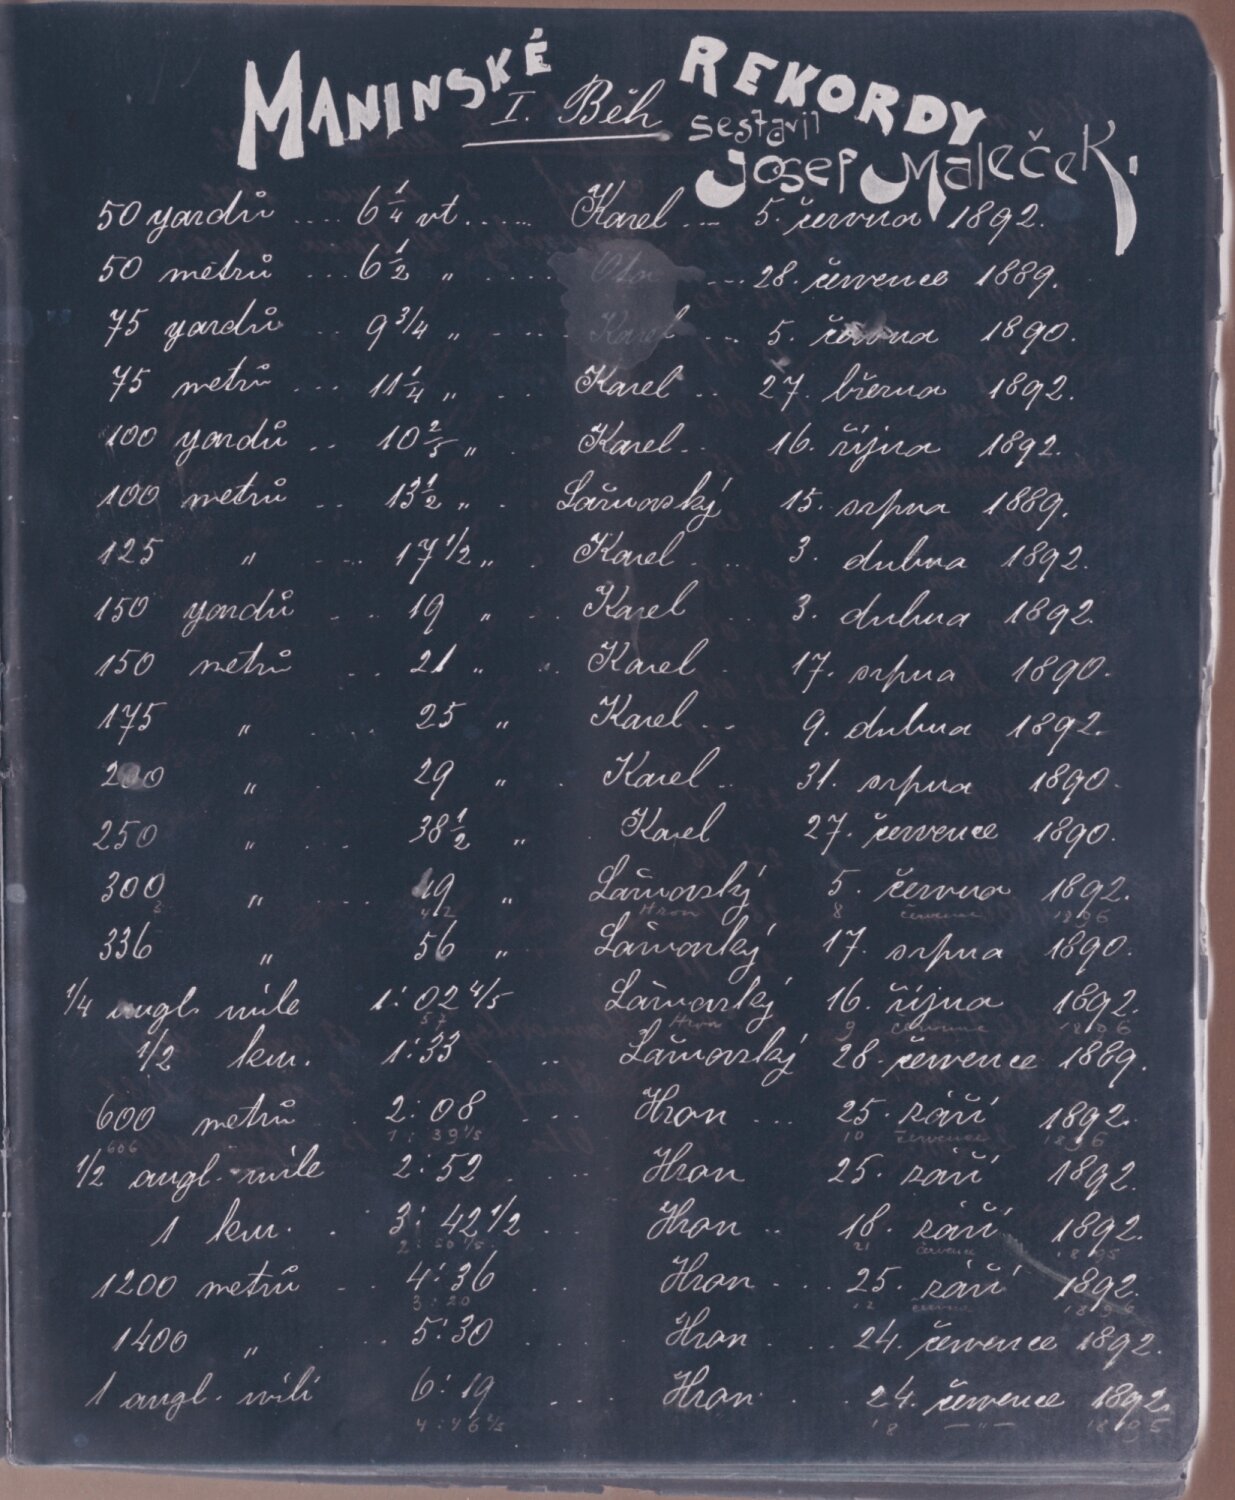 MANINSKÉ REKORDY
I. Běh
sestavil
Josef Maleček.
50 yardů .... 6 1/4 vt...... Karel ... 5. června 1892.
50 metrů ... 6 1/2 „ ..... Ota ... 28. července 1889.
75 yardů ... 9 3/4 „ .... Karel ... 5. června 1890.
75 metrů ... 11 1/4 „ .. Karel .. 27. března 1892.
100 yardů .. 10 2/5 „ . Karel .. 16. října 1892.
100 metrů .. 13 1/2 „ . Lášnovský 15. srpna 1889.
125 „ .... 17 1/2 „ . Karel ... 3. dubna 1892.
150 yardů ... 19 „ .. Karel .. 3. dubna 1892.
150 metrů .. 21 „ .. Karel .. 17. srpna 1890.
175 „ .... 25 „ Karel .. 9. dubna 1892.
200 „ . 29 „ . Karel .. 31. srpna 1890.
250 „ ... 38 1/2 „ . Karel 27. července 1890.
300 „ .... 49 „ 5. června 1892.
42 Hron 8 července 1896
336 „ 56 „ 17. srpna 1890.
1/4 angl. míle 1:02 4/5 16. října 1892.
57 Hron 9 července 1896
1/2 km. 1:33 .. 28. července 1889.
600 metrů 2:08 .. Hron ... 25. září 1892.
606 1:39 1/5 10 července 1896
1/2 angl. míle 2:52 ... Hron 25. září 1892.
1 km. .. 3:42 1/2 .. Hron .. 18. září 1892.
2:50 1/5 21 července 1895
1200 metrů .. 4:36 .. Hron .... 25. září 1892.
3:20 12 června 1896
1400 „ ... 5:30 ... Hron ... 24. července 1892.
1 angl. míli 6:19 ... Hron ... 24. července 1892.
4:46 2/5 18 — „ — 1895